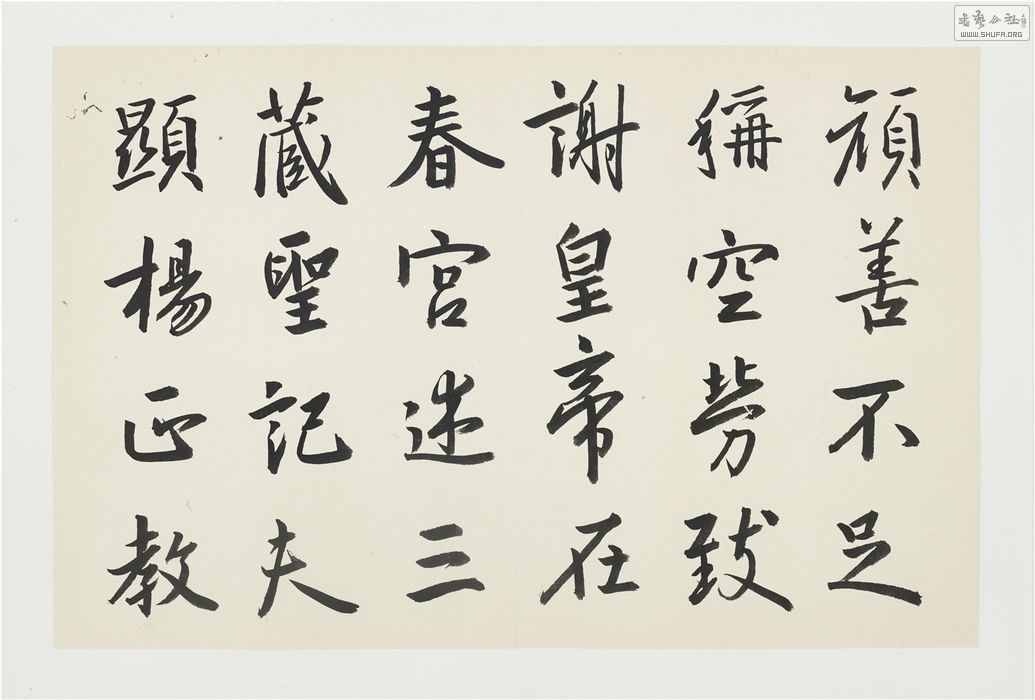 頑善不足
稱空勞致
謝皇帝在
春宮述三
藏聖記夫
顯楊正教
書藝公社
WWW.SHUFA.ORG